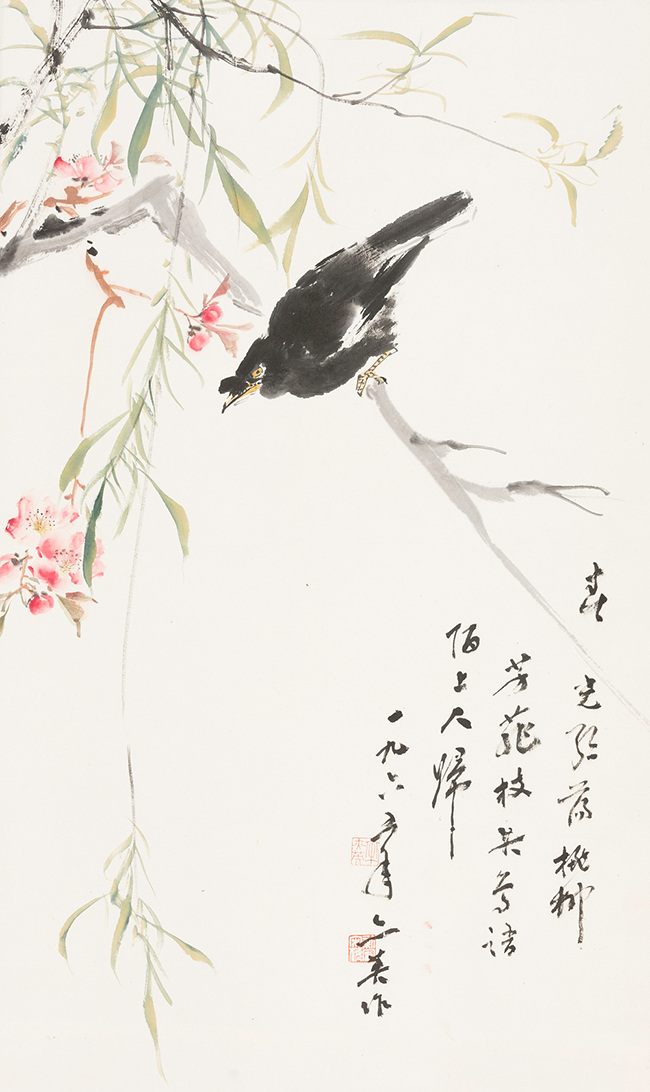 春光骀荡桃柳
芳菲枝头鸟语
陌上人歸
一九六五年作